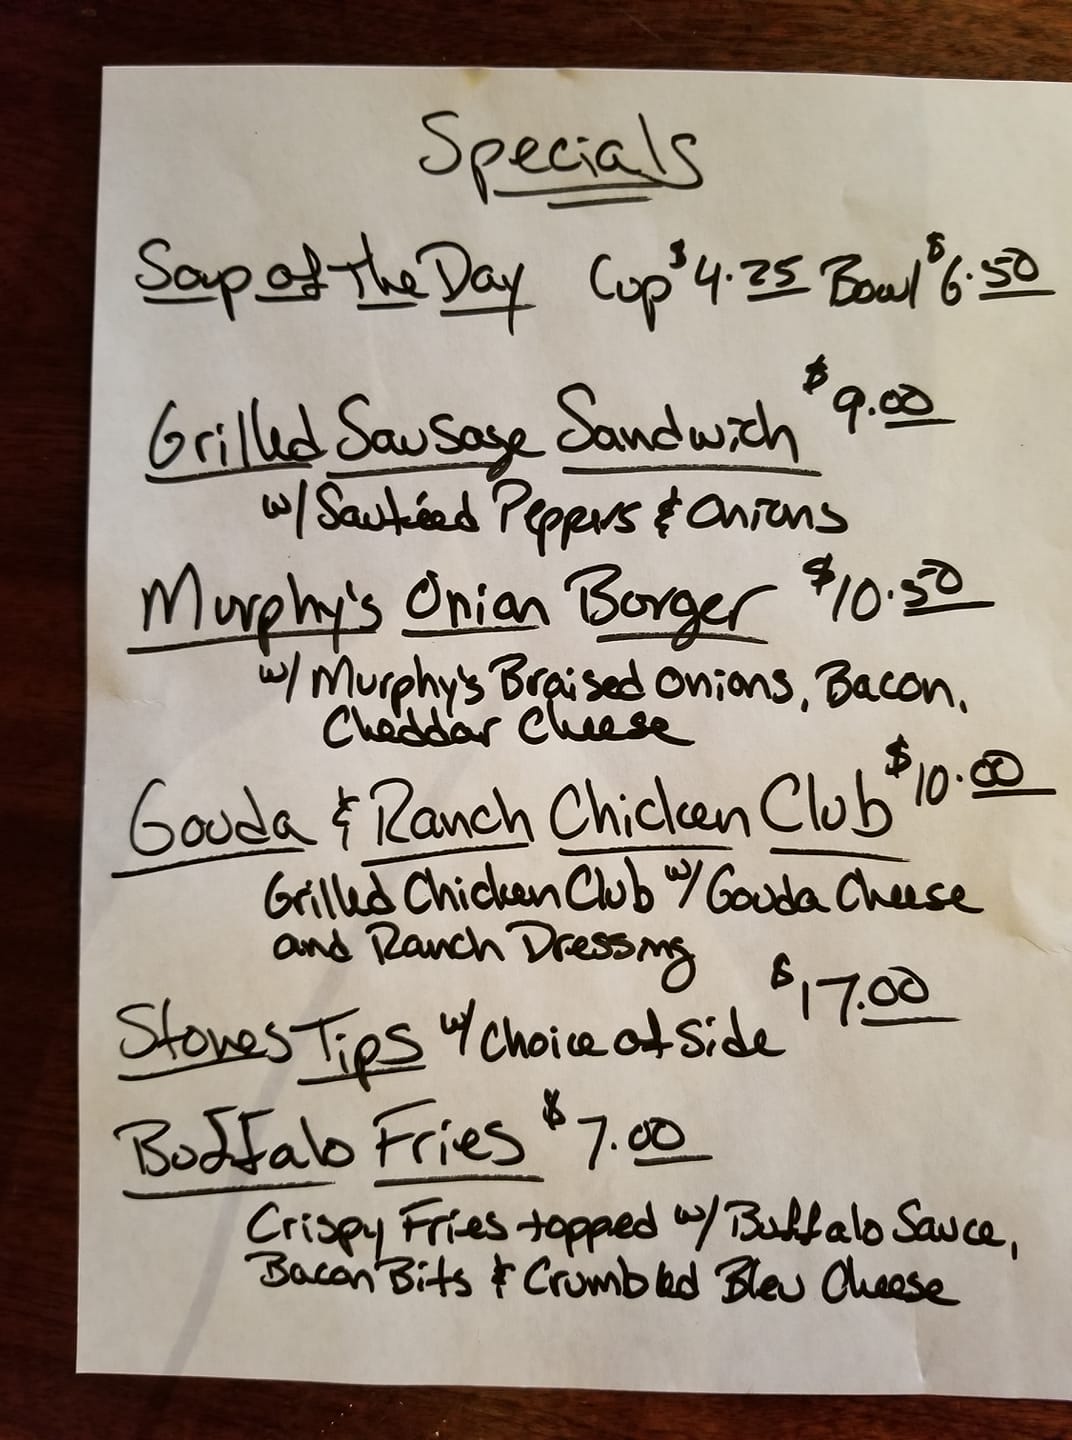 Specials
Soup of the Day Cup $4.25 Bowl $6.50
Grilled Sausage Sandwich $9.00
w/ Sautéed Peppers & Onions
Murphy's Onion Burger $10.50
w/ Murphy's Braised Onions, Bacon,
Cheddar Cheese
Gouda & Ranch Chicken Club $10.00
Grilled Chicken Club w/ Gouda Cheese
and Ranch Dressing
Stones Tips w/ Choice of Side $17.00
Buffalo Fries $7.00
Crispy Fries topped w/ Buffalo Sauce,
Bacon Bits & Crumbled Bleu Cheese